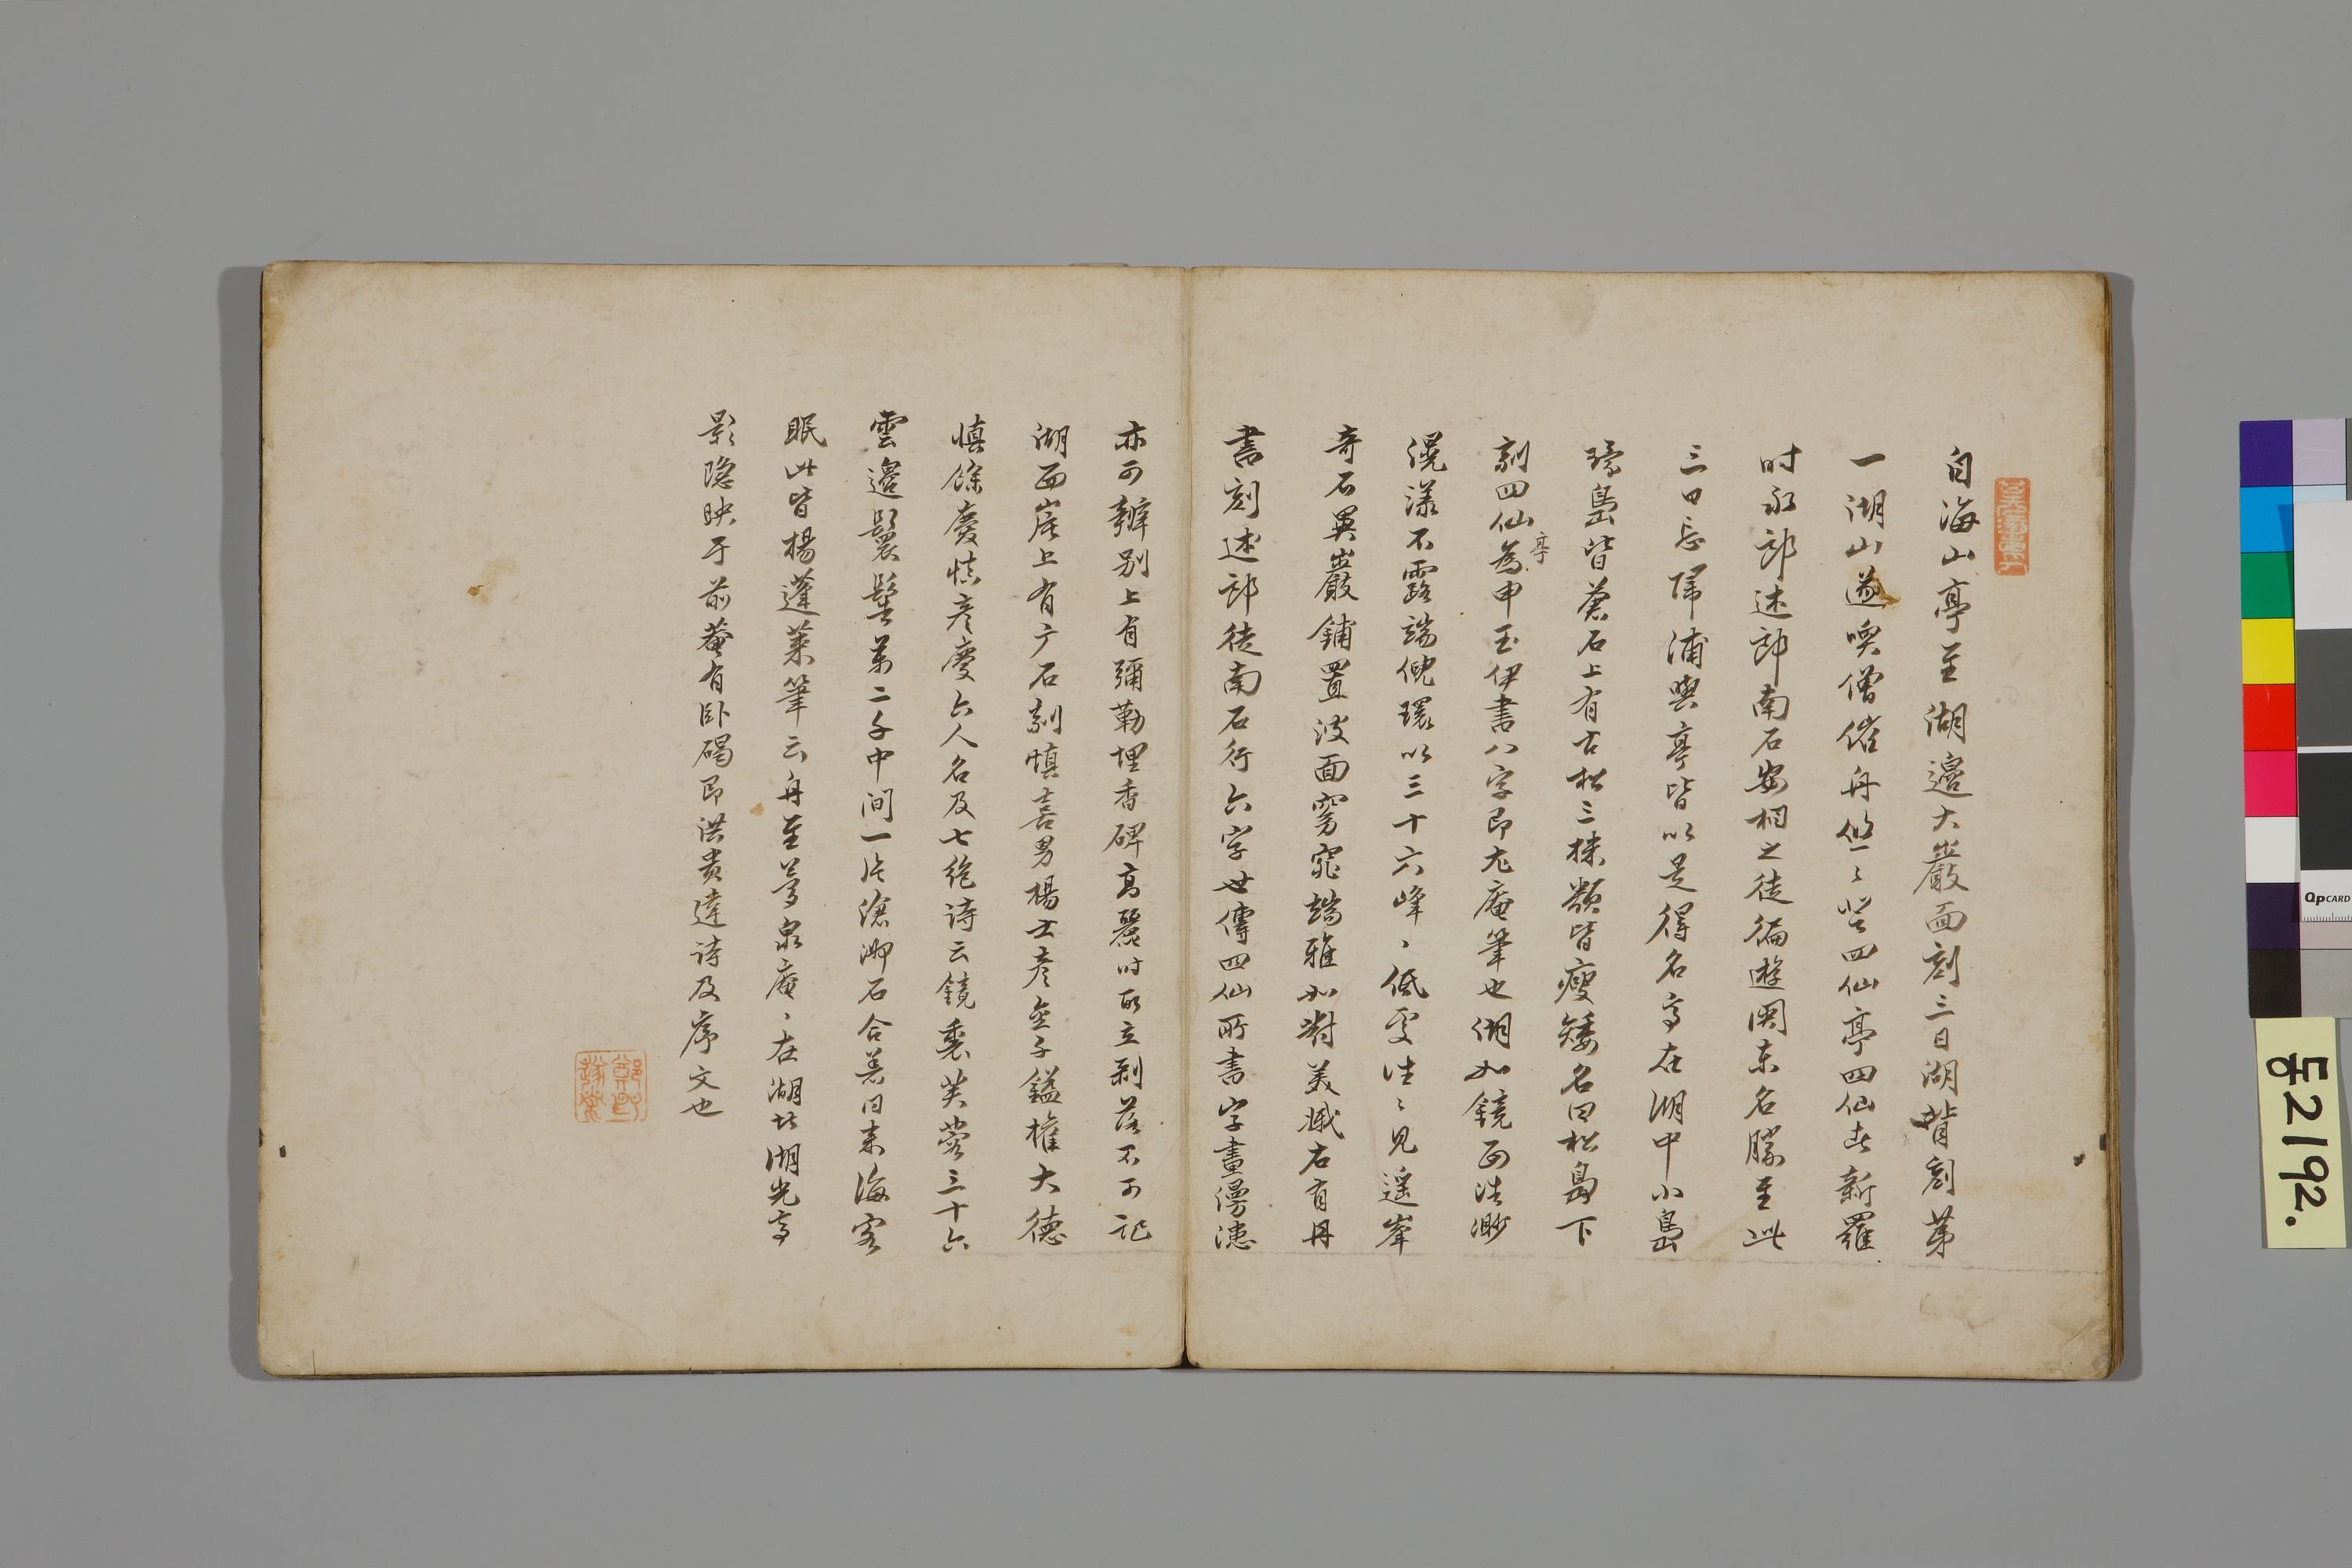 自海山亭至湖邊大巖面刻三日湖背刻第
一湖山遂喚僧催舟悠〻登四仙亭四仙者新羅
時永郞述郞南石安相之徒徧遊関東名勝至此
三日忘歸浦與亭皆以是得名亭在湖中小島
環島皆蒼石上有古松三株顏皆瘦矮名曰松島下
刻四仙亭爲申玉伊書八字即尤庵筆也湖如鏡面浩渺
滉漾不露端倪環以三十六峰〻低處往〻見遙峯
奇石異巖鋪置波面窈窕端雅如對美戚右有丹
書刻述郞徒南石行六字世傳四仙所書字畫漫漶
亦可辨別上有彌勒埋香碑高麗時所立剥落不可記
湖西崖上有广石刻愼喜男楊士彦無子鎰權大德
愼餘慶愼彦慶六人名及七絶詩云鏡裏芙蓉三十六
雲邊鬟髻萬二千中間一片滄洲石合着同來海客
眠此皆楊蓬萊筆云舟至夢泉庵〻在湖北湖光亭
影隱映于前菴有臥碣即洪貴達詩及序文也
동2192.
QPCARD